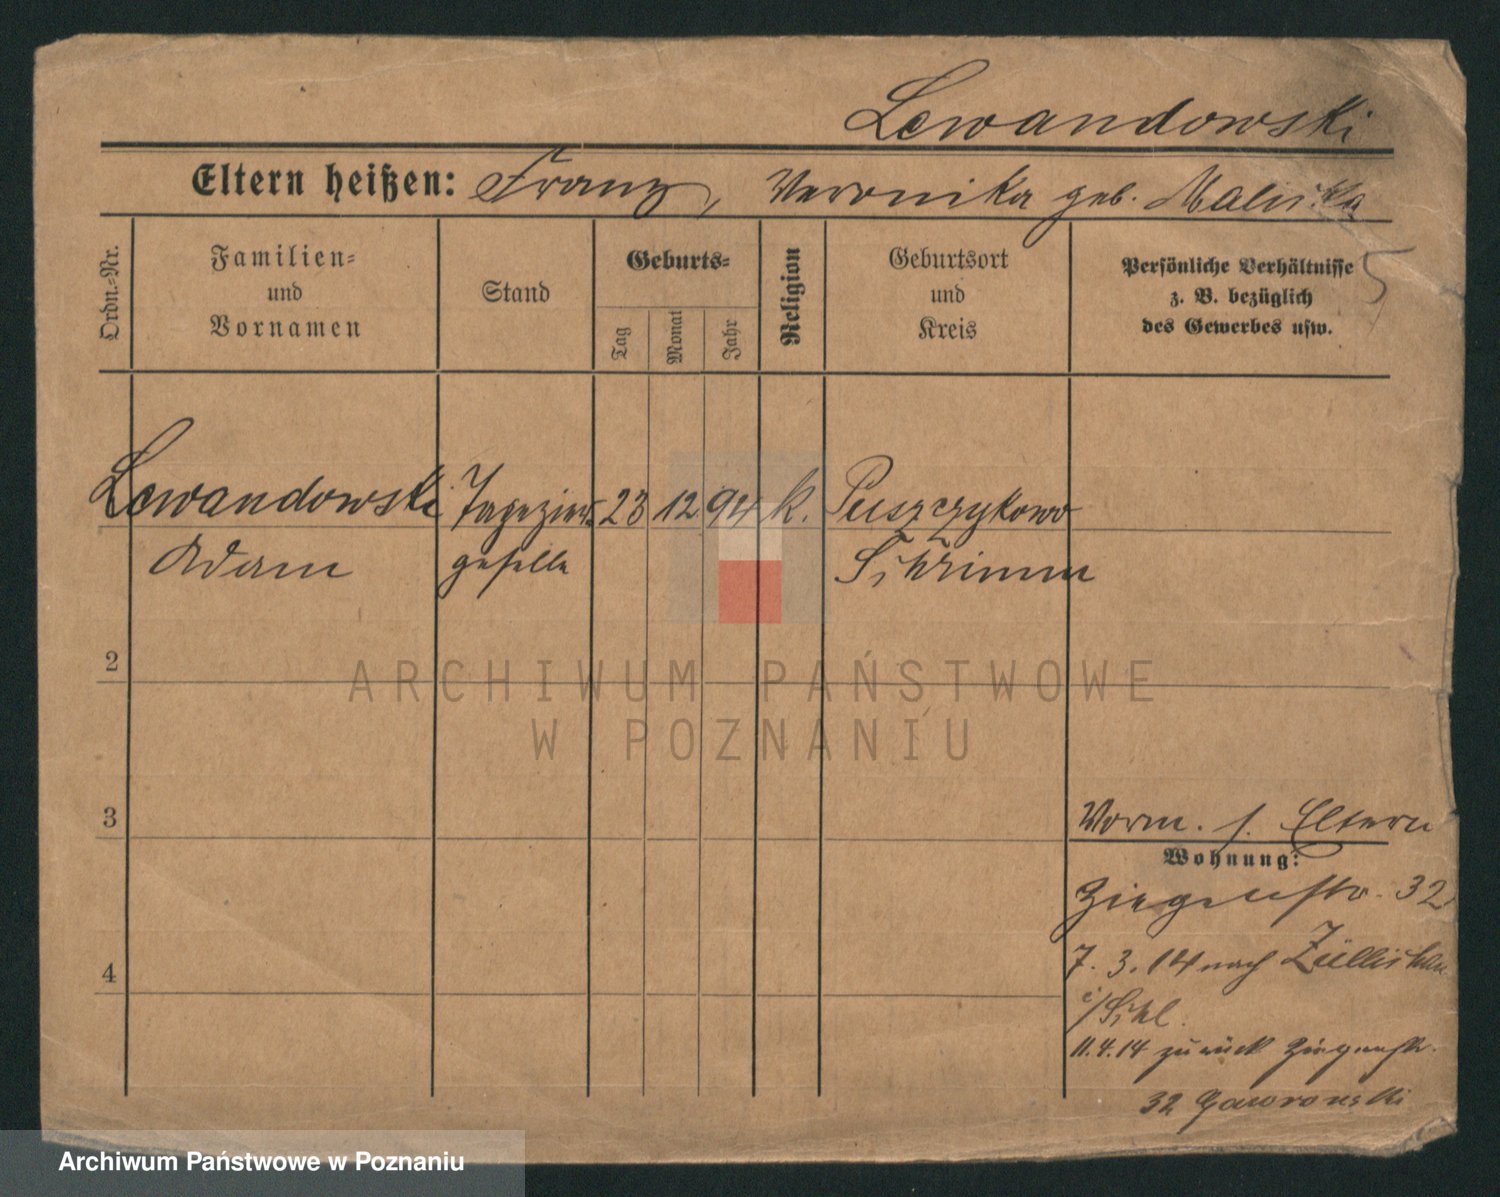 Lewandowski
Eltern heißen: Franz, Veronika geb. Maliska
5
Ordn.-Nr.
Familien-
und
Vornamen
Stand
Geburts-
Tag
Monat
Jahr
Religion
Geburtsort
und
Kreis
Persönliche Verhältnisse
z. B. bezüglich
des Gewerbes usw.
Lewandowski Tapezier- 23 12 94 k. Puszczykowo
Adam geselle Schrimm
2
ARCHIWUM PAŃSTWOWE
W POZNANIU
3
Vorm. s. Eltern
Wohnung:
Ziegenstr. 32
4
7.3.14 nach Züllichau
i/Schl.
11.4.14 zurück Ziegenstr.
32 Gaworonski
Archiwum Państwowe w Poznaniu